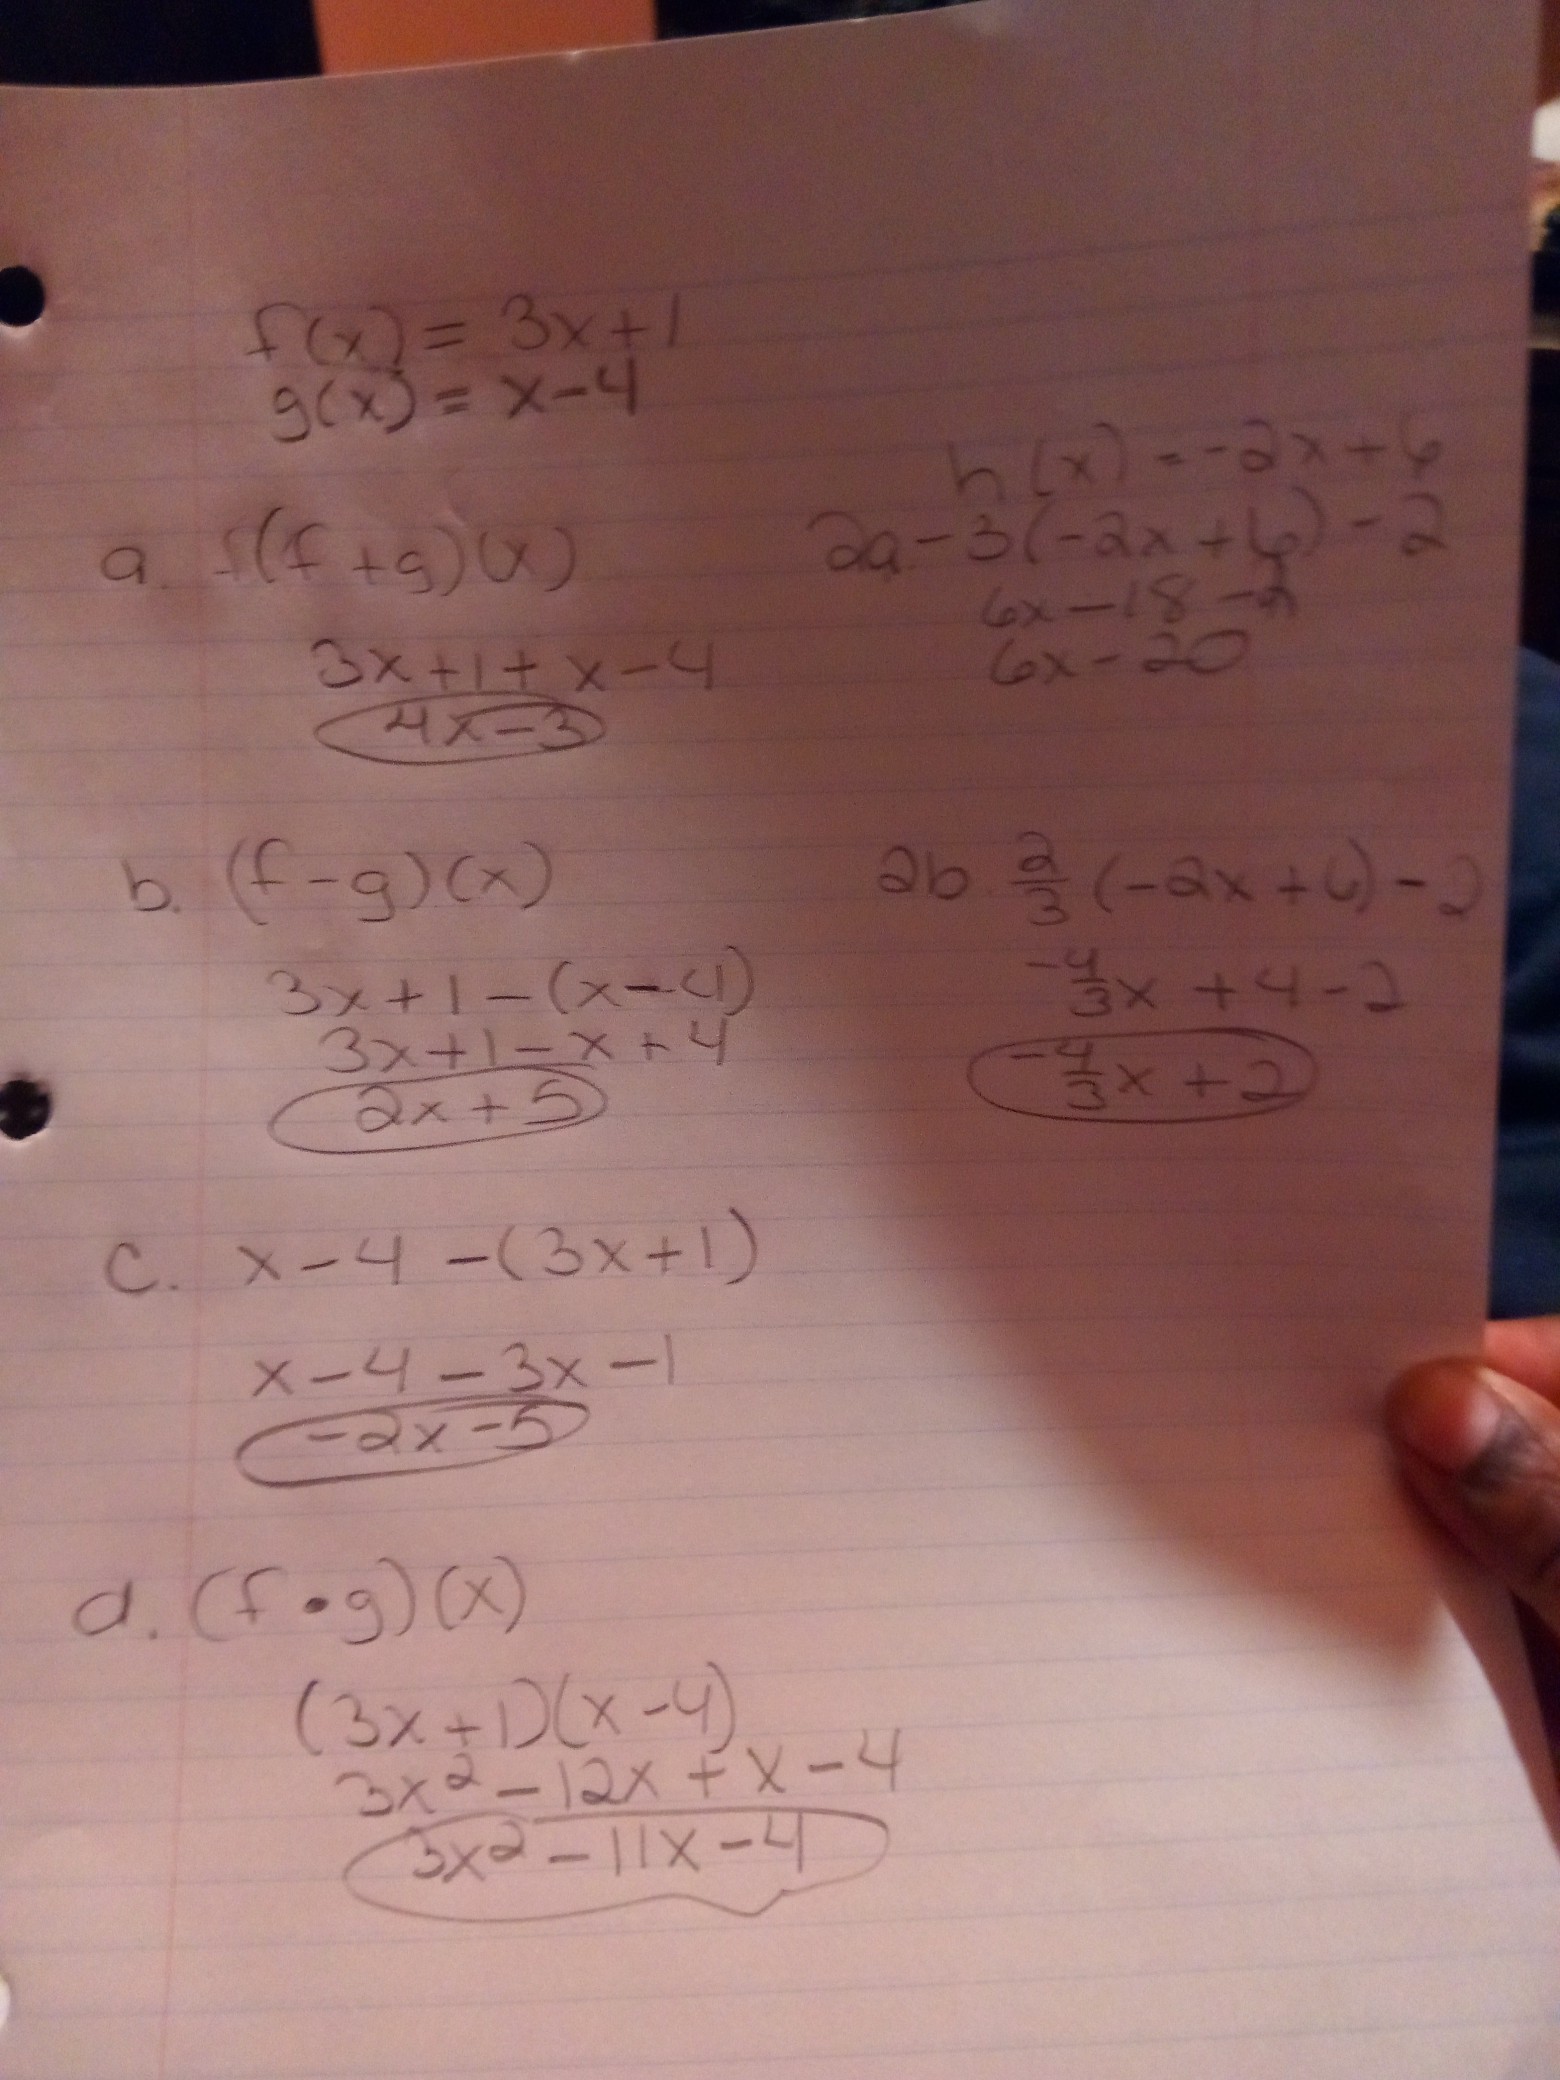 f(x) = 3x+1
g(x) = x-4
a. f(f+g)(x)
3x+1+x-4
4x-3
b. (f-g)(x)
3x+1-(x-4)
3x+1-x+4
2x+5
c. x-4-(3x+1)
x-4-3x-1
-2x-5
d. (f•g)(x)
(3x+1)(x-4)
3x²-12x+x-4
3x²-11x-4
h(x) = -2x+6
2a -3(-2x+6)-2
6x-18-2
6x-20
2b. 2/3 (-2x+6)-2
-4/3x+4-2
-4/3x+2